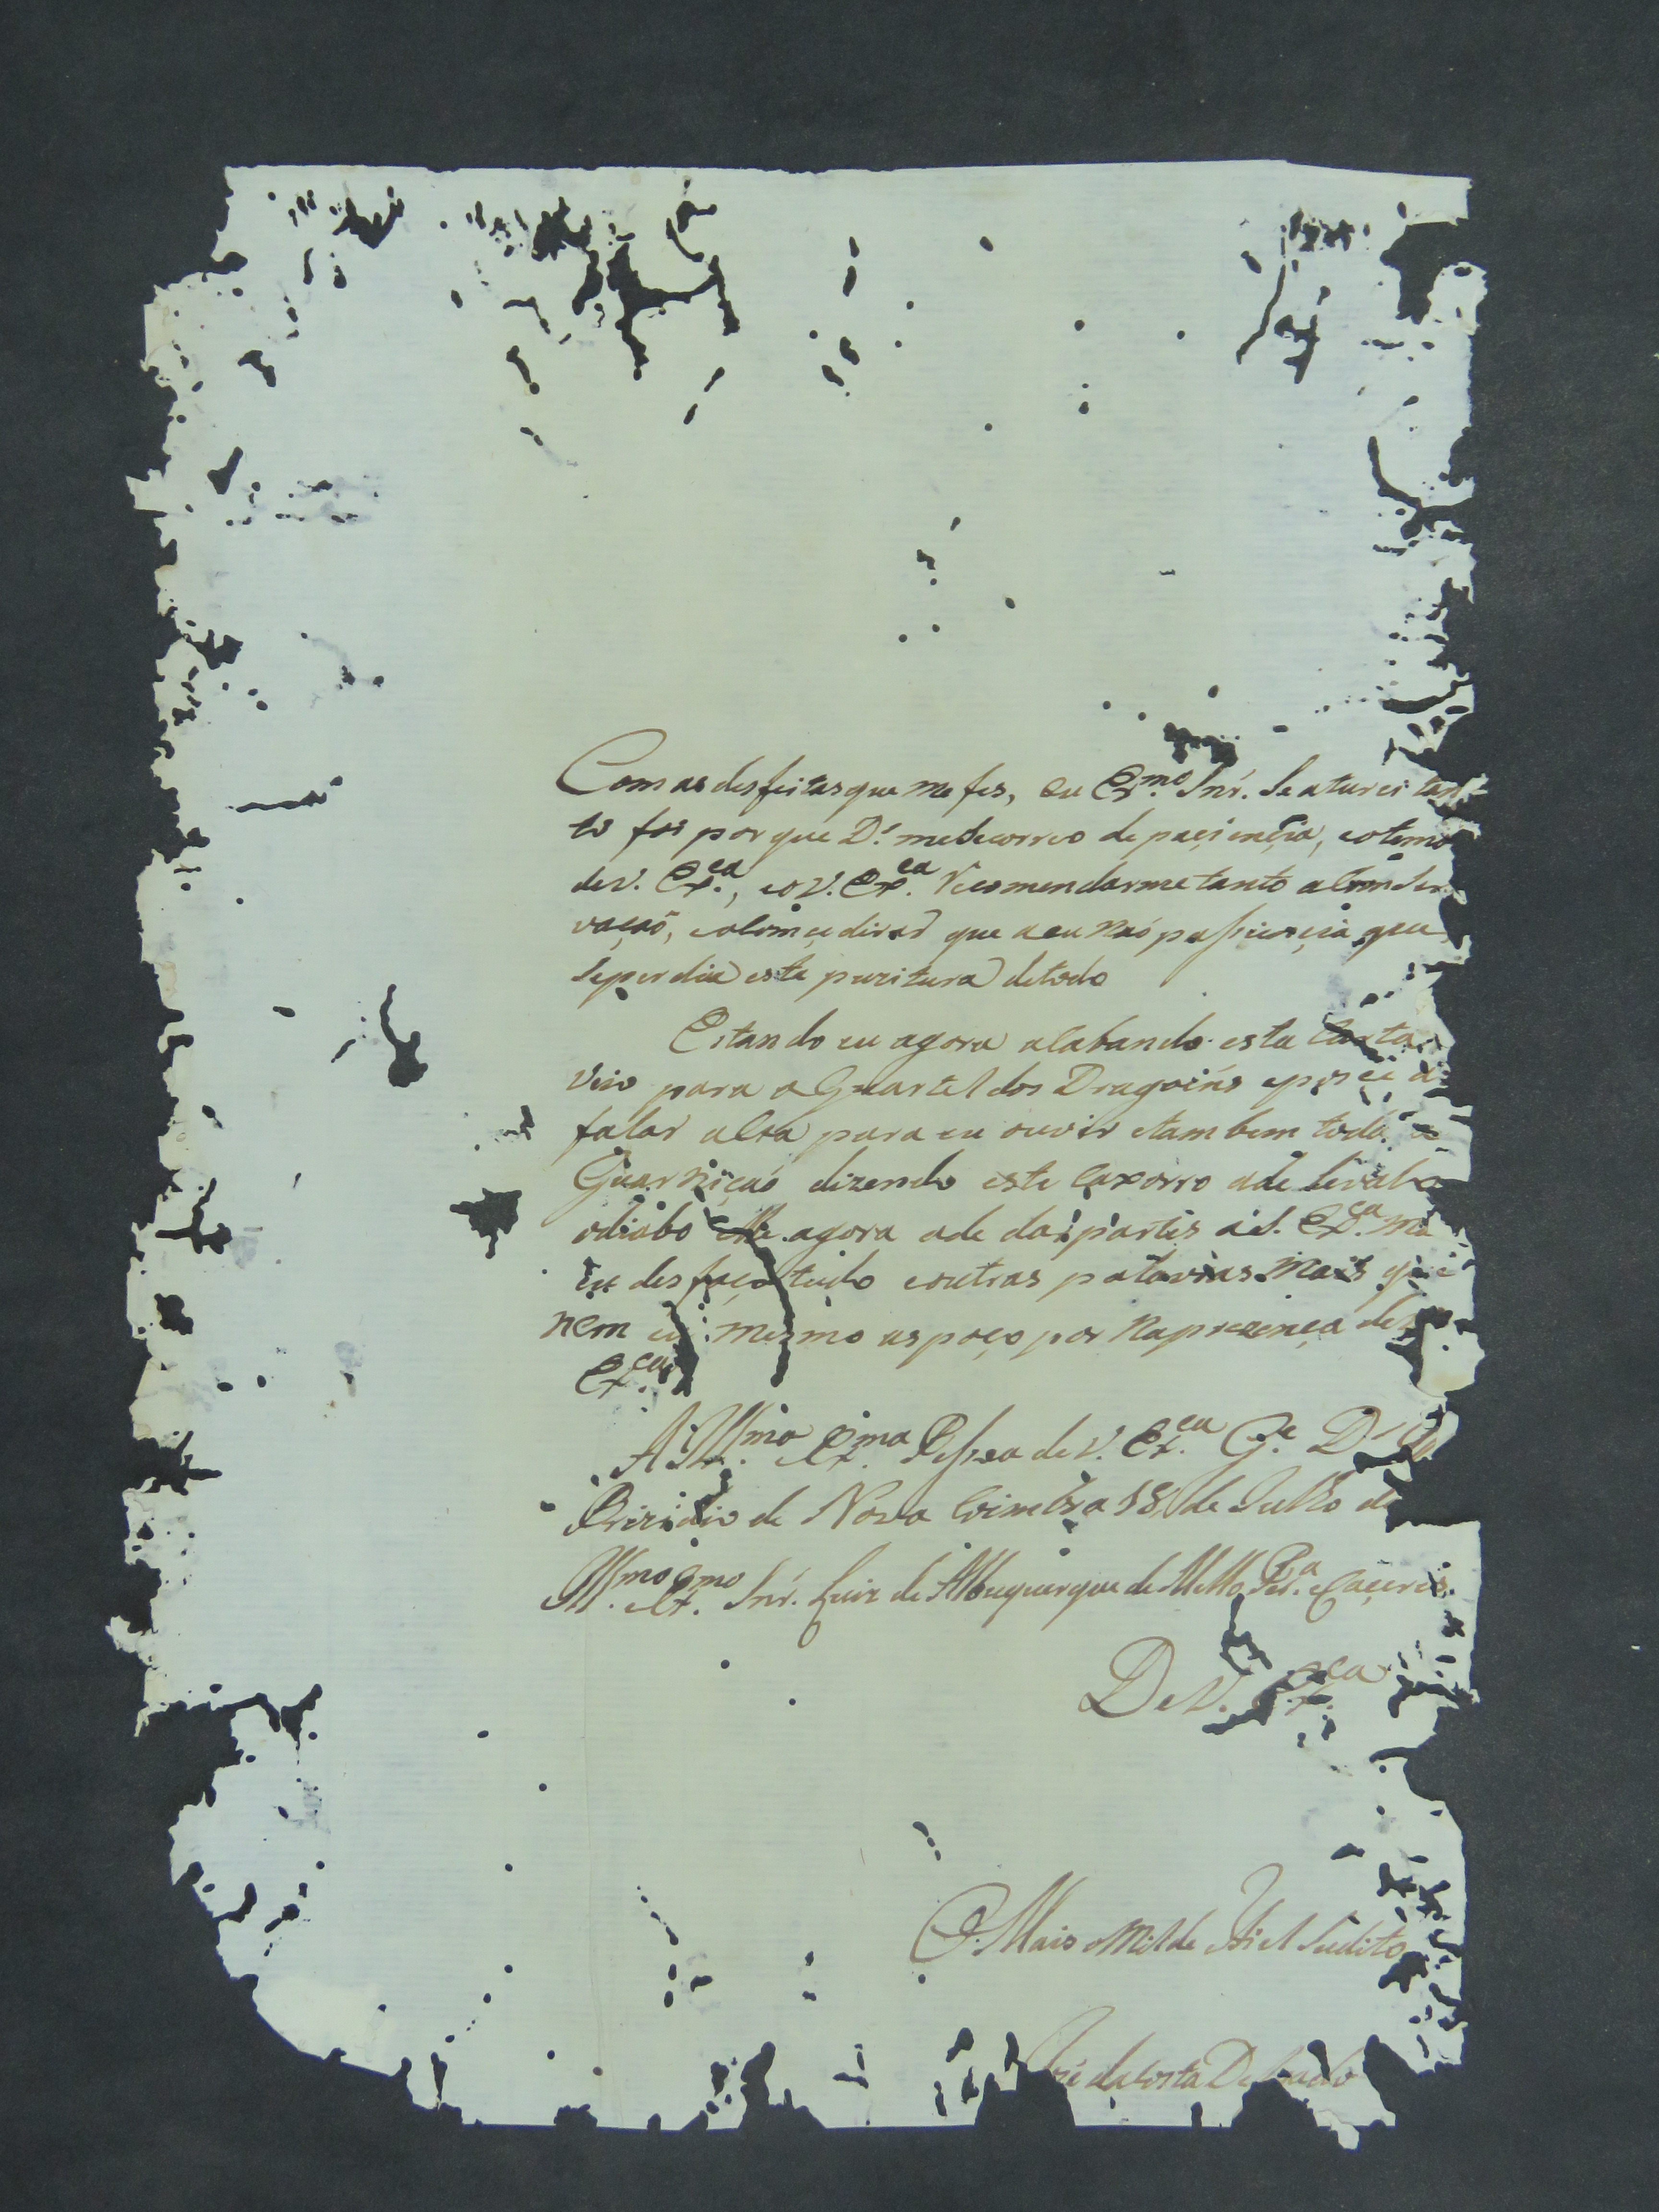 Com as desfeitas que me fes, eu Ex.mo Snr. Se aturei tan-
to foi por que D.s me Secorreo de paçiençia, eo temor
de V. Ex.ca, eo V. Ex.ca Recomendarme tanto a bom Ser
vaçaõ, que a eu naõ que
Seperdia esta detodo
Estando eu agora acabando esta Carta
Veio para o Quartel dos Dragoins e a
falar alto para eu ouvir etambem toda a
Guarniçaõ dizendo este caxorro ade levalo
odiabo elle agora ade dar partes aS. Ex.ca ma
eu desfaço tudo eoutras palavras mais que
nem eu mesmo as poço por Naprezença de V.
Ex.ca
A Ill.ma Ex.ma Pessoa de V. Ex.ca G.e D.s
Prizidio de Nova Coimbra 18 de Julho de
Ill.mo Ex.mo Snr. Luiz de Albuquerque de Mello Per.a e Caçeres
De V. Ex.ca
O Mais omilde Fiel Sudito
José da Costa Delgado